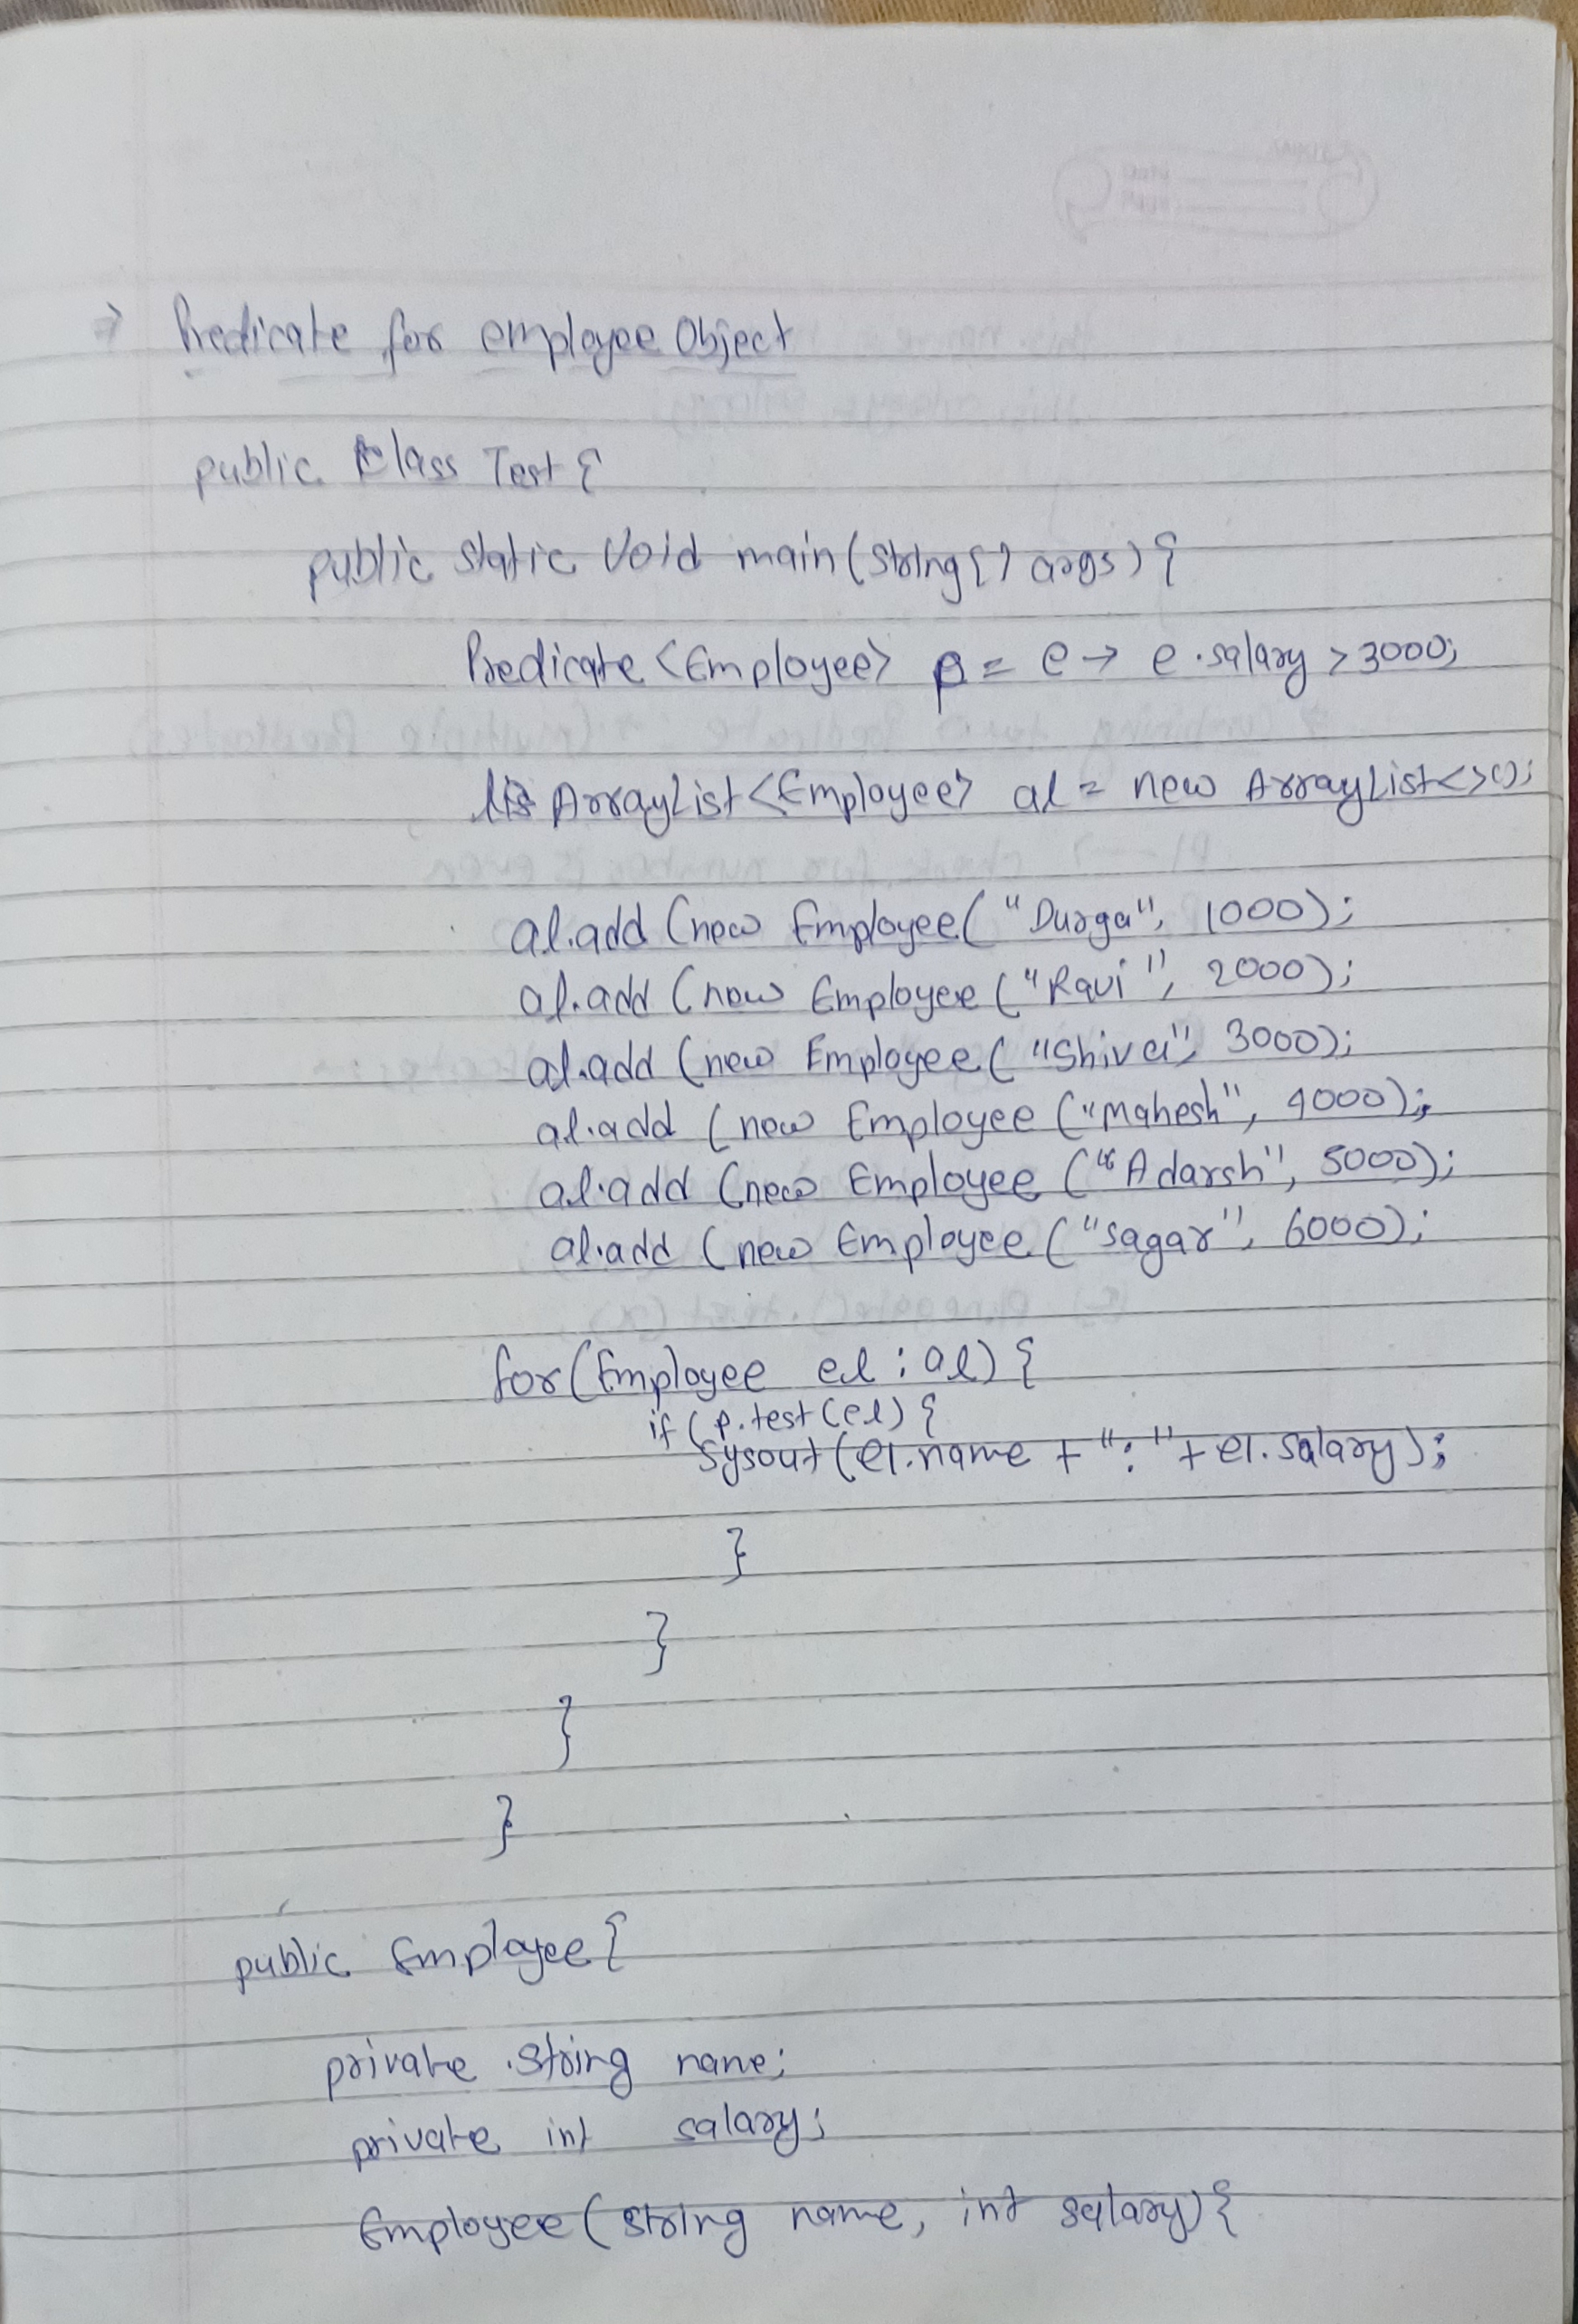 → Predicate for employee Object
public class Test {
public static void main(String[] args) {
Predicate <Employee> p = e → e.salary > 3000;
ArrayList<Employee> al = new ArrayList<>();
al.add (new Employee( "Durga", 1000);
al.add (new Employee ("Ravi", 2000);
al.add (new Employee ( "Shiva", 3000);
al.add (new Employee ("Mahesh", 4000);
al.add (new Employee ("Adarsh", 5000);
al.add (new Employee ("sagar", 6000);
for(Employee el : al) {
if (p.test(el) {
Sysout (el.name + ":" + el.salary);
}
}
}
}
public Employee {
private String name;
private int salary;
Employee (String name, int salary) {